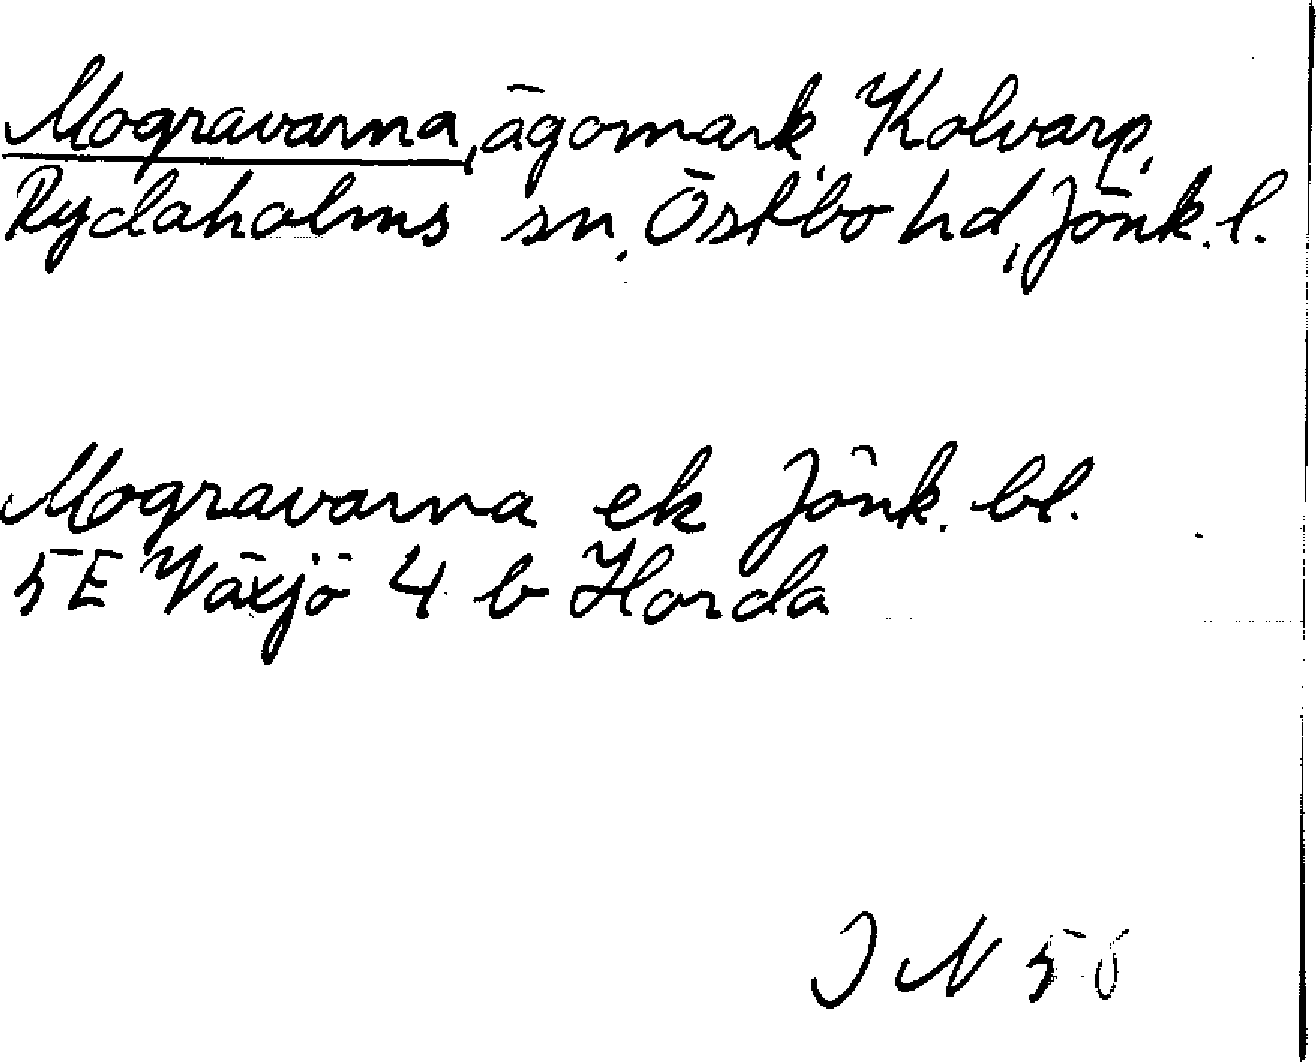 Mogravarna, ägomark, Kolvarp,
Rydaholms sn, Östbo hd, Jönk. l.
Mogravarna ek Jönk. bl.
5E Växjö 4 b Horda
J N 50